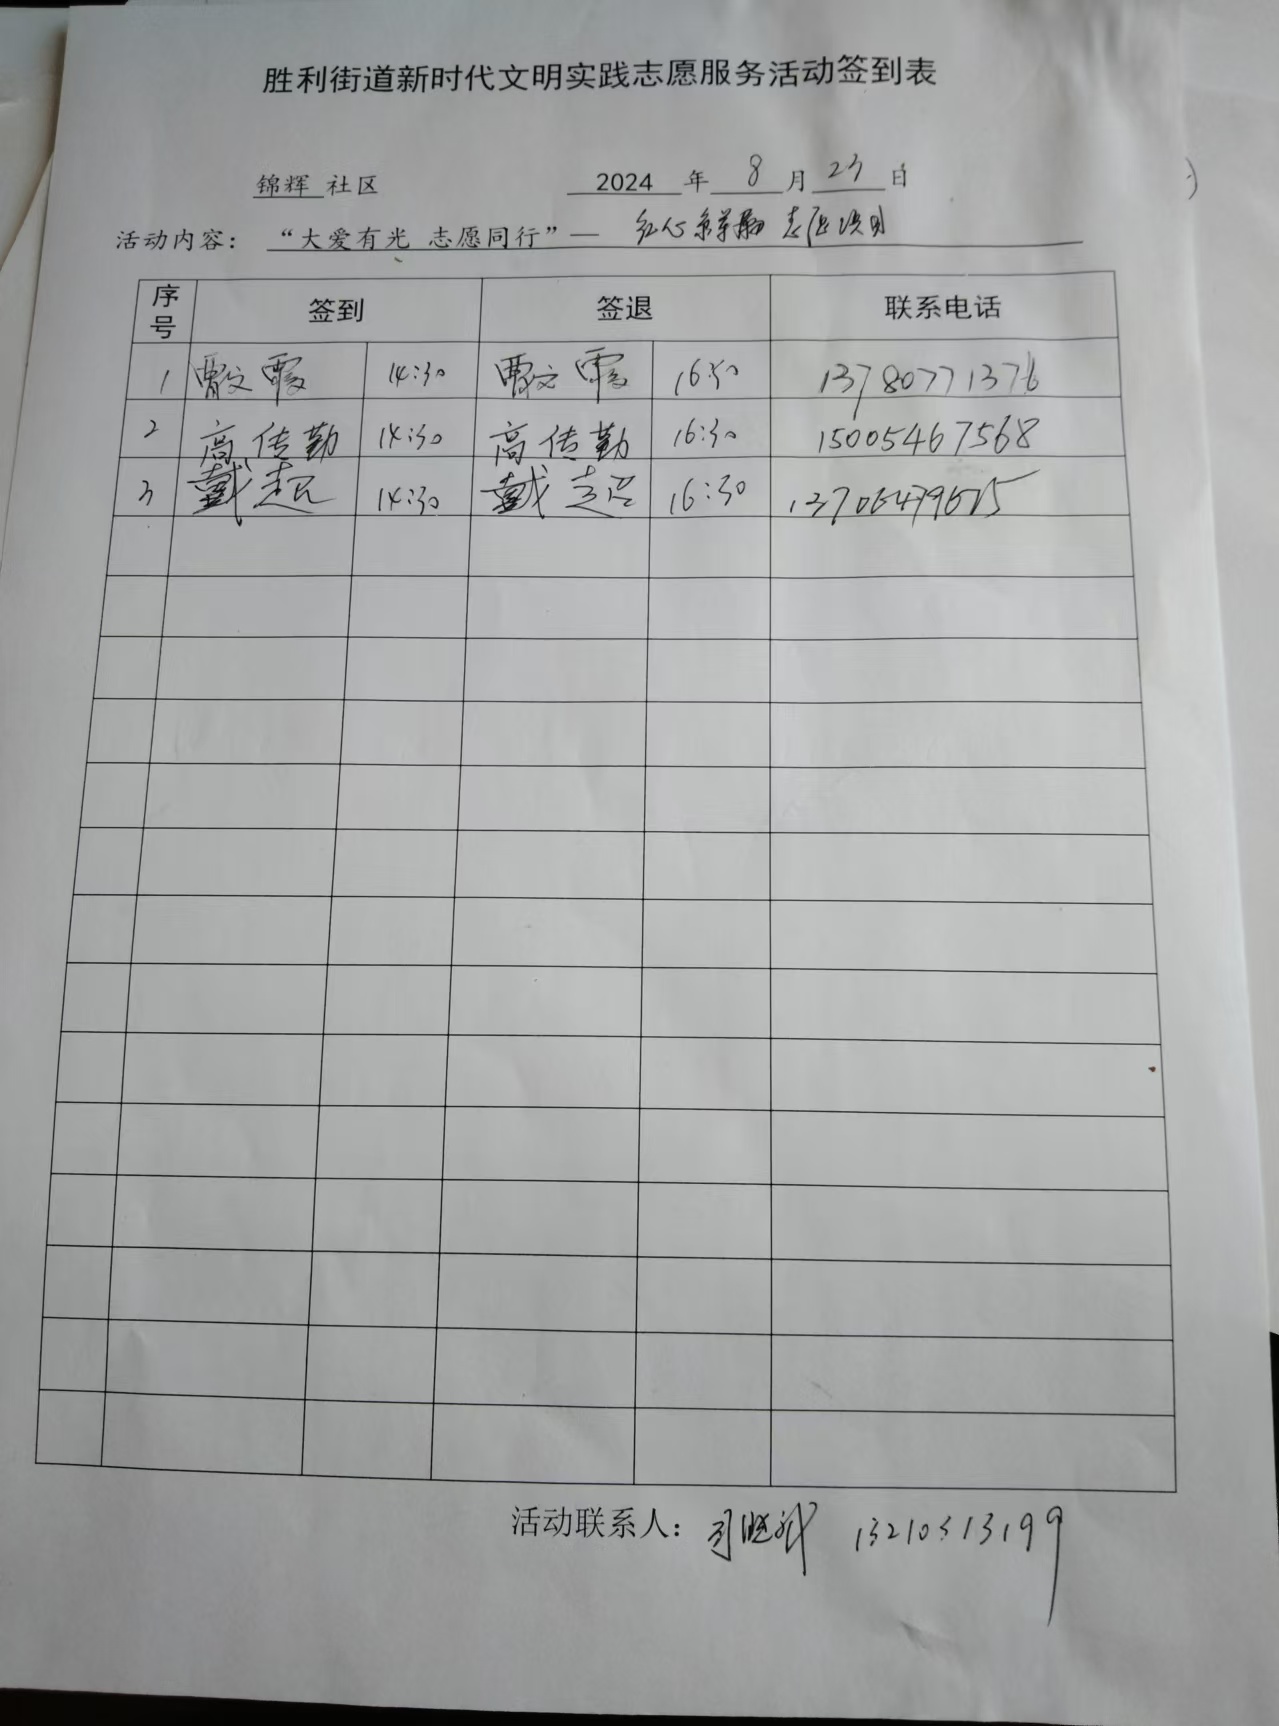 胜利街道新时代文明实践志愿服务活动签到表
锦辉 社区 2024 年 8 月 23 日
活动内容：“大爱有光 志愿同行”— 红心 志愿项目
序号 签到 签退 联系电话
1 贾文霞 14:30 贾文霞 16:30 13780771376
2 高传勤 14:30 高传勤 16:30 15005467568
3 戴 14:30 戴 16:30
活动联系人： 司晓 13210313199